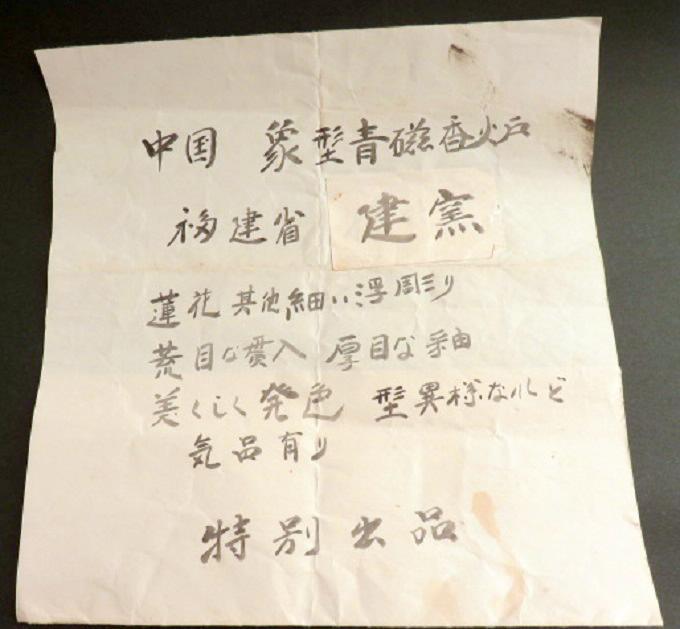 中国 象型青磁香炉
福建省 建窯
蓮花其他細い浮彫り
荒目な貫入 厚目な釉
美くしく発色 型異様なれど
気品有り
特別出品